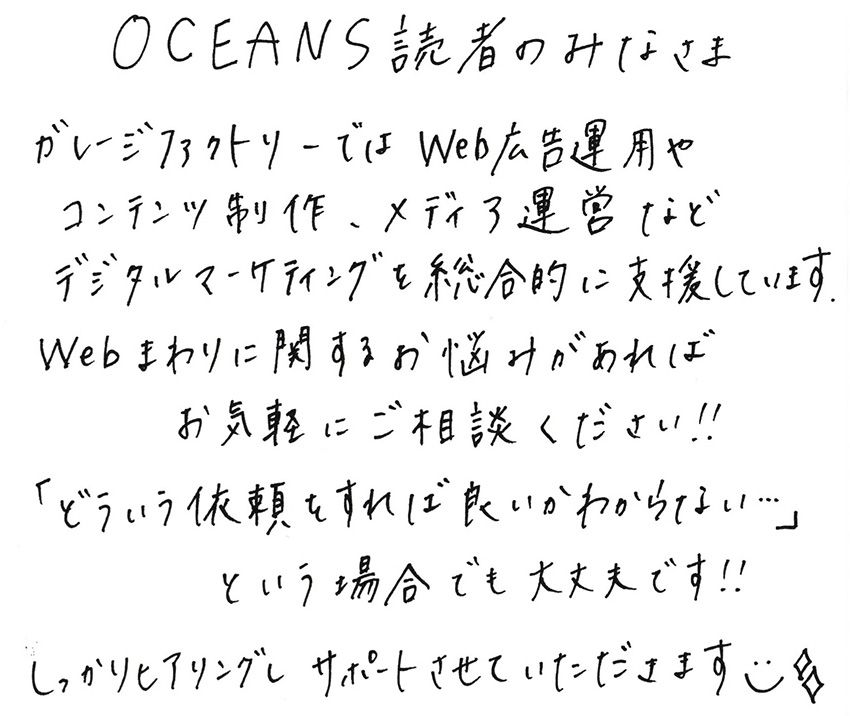 OCEANS読者のみなさま
ガレージファクトリーではWeb広告運用や
コンテンツ制作、メディア運営など
デジタルマーケティングを総合的に支援しています.
Webまわりに関するお悩みがあれば
お気軽にご相談ください!!
「どういう依頼をすれば良いかわからない…」
という場合でも大丈夫です!!
しっかりヒアリングし サポートさせていただきます